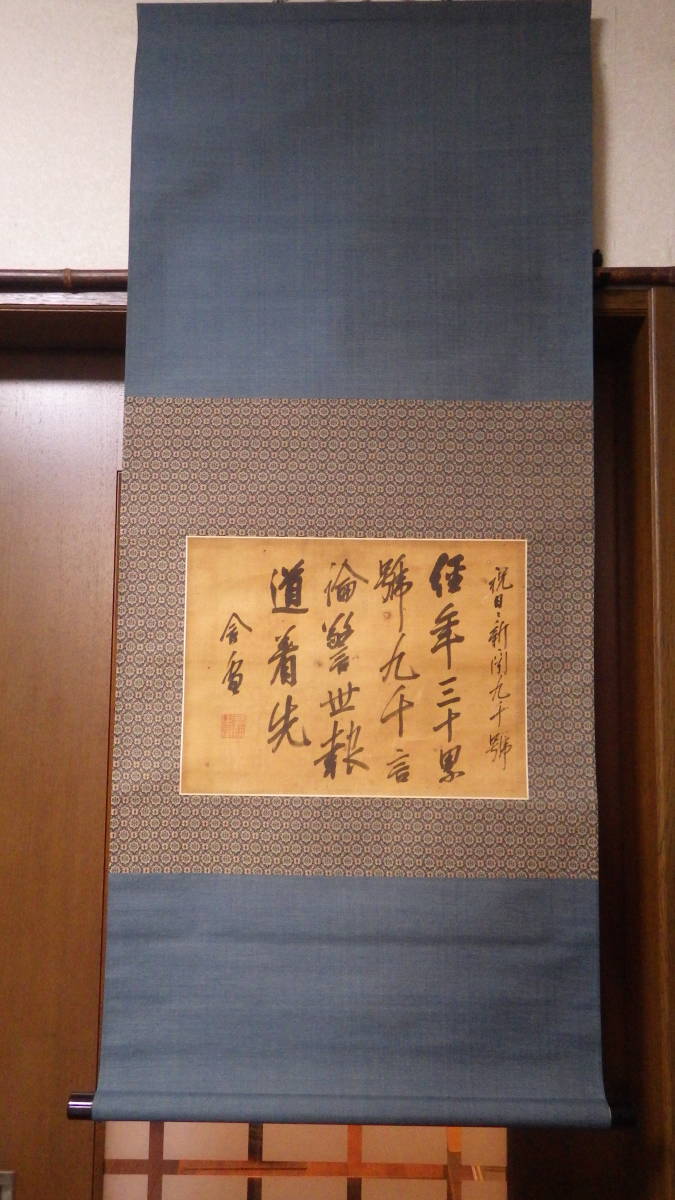 祝日々新聞九千號
經年三十累
號九千言
論警世報
道着先